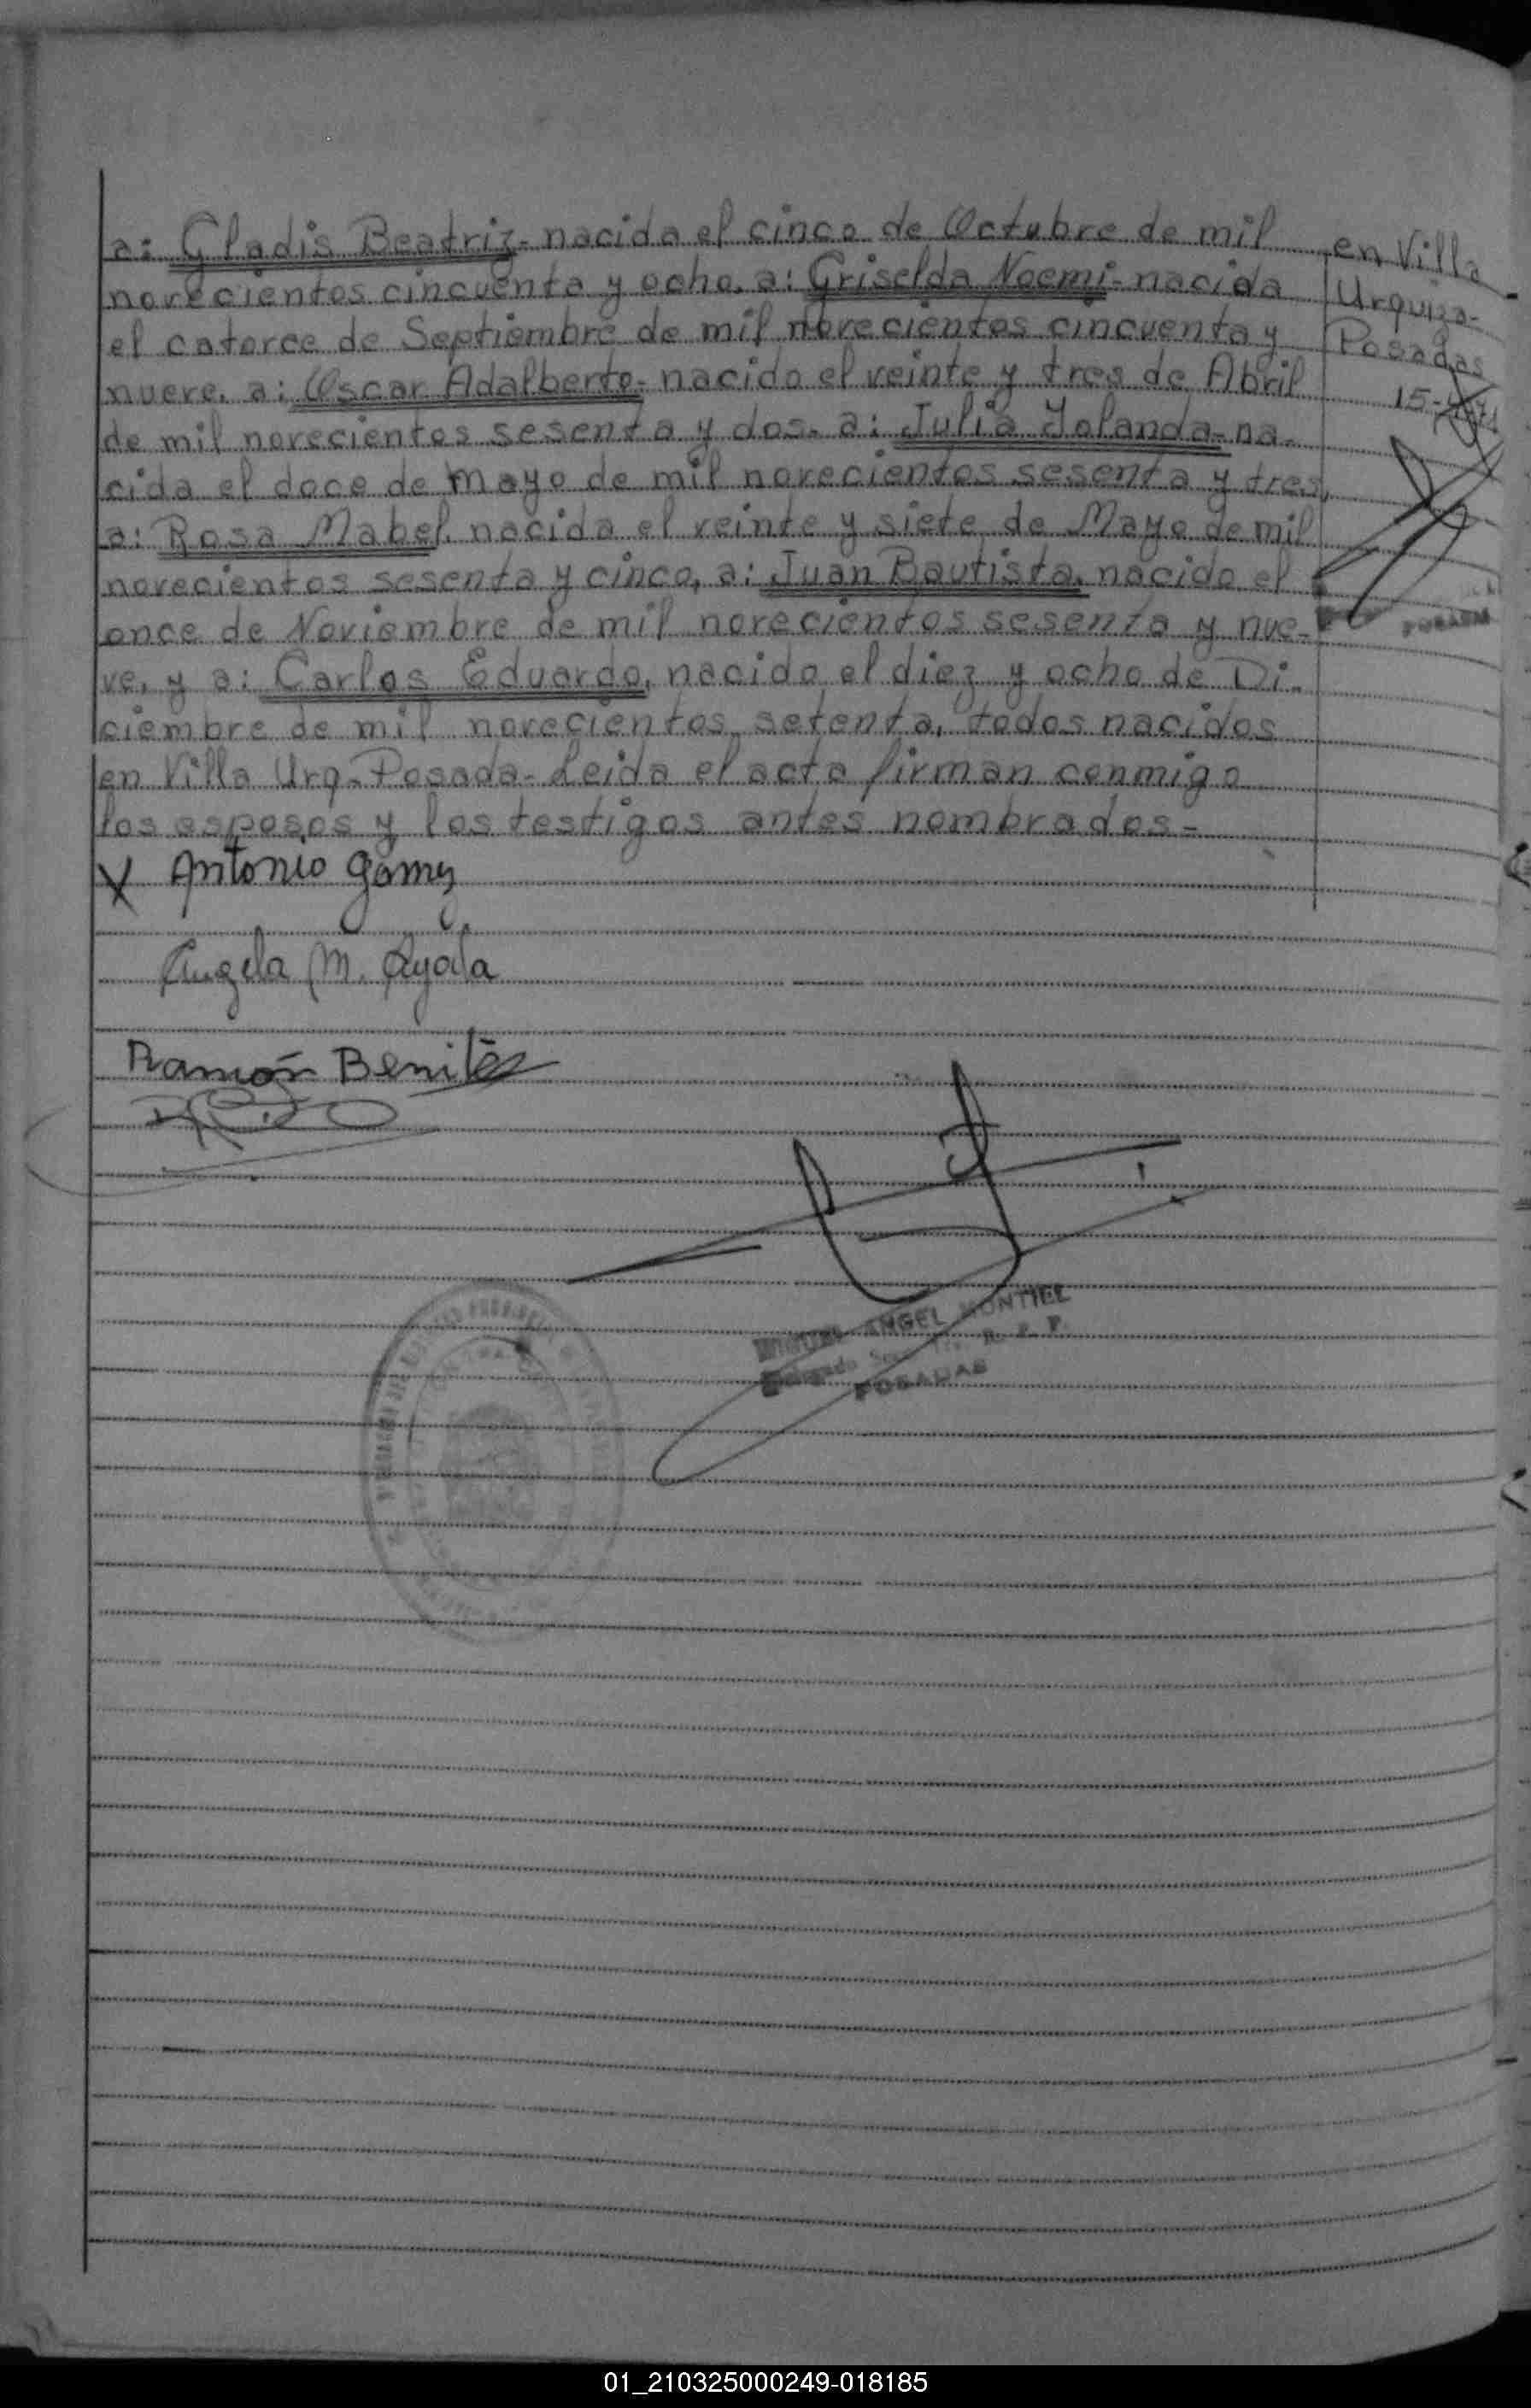 a: Gladis Beatriz- nacida el cinco de Octubre de mil
novecientos cincuenta y ocho, a: Griselda Noemi- nacida
el catorce de Septiembre de mil novecientos cincuenta y
nueve, a: Oscar Adalberto- nacido el veinte y tres de Abril
de mil novecientos sesenta y dos- a: Julia Yolanda- na-
cida el doce de mayo de mil novecientos sesenta y tres,
a: Rosa Mabel, nacida el veinte y siete de Mayo de mil
novecientos sesenta y cinco, a: Juan Bautista, nacido el
once de Noviembre de mil novecientos sesenta y nue-
ve, y a: Carlos Eduardo, nacido el diez y ocho de Di-
ciembre de mil novecientos setenta, todos nacidos
en Villa Urq- Posada- Leida el acta firman conmigo
los esposos y los testigos antes nombrados-
en Villa
Urquiza-
Posadas
X Antonio Gomez
Angela M. Ayala
Ramón Benites
MIGUEL ANGEL MONTIEL
R. P. P.
POSADAS
01_210325000249-018185